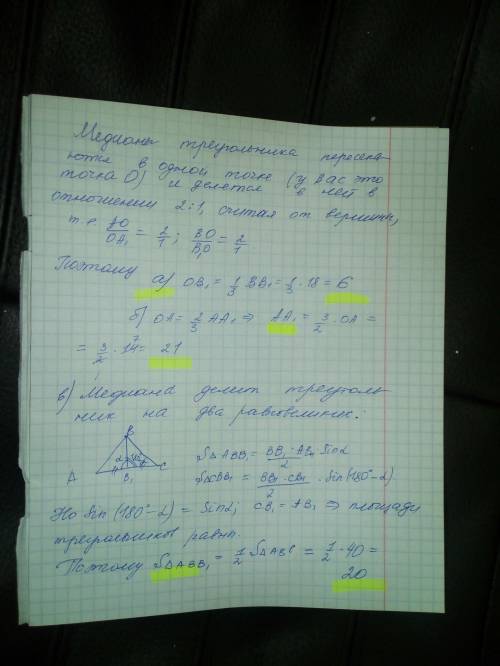 Медианы треугольника пересека
ются в одной точке (у Вас это
точка О) и делятся в ней в
отношении 2:1, считая от вершины,
т.е. AO/OA₁ = 2/1; BO/B₁O = 2/1
Поэтому а) OB₁ = 1/3 BB₁ = 1/3 · 18 = 6
б) OA = 2/3 AA₁ ⇒ AA₁ = 3/2 · OA =
= 3/2 · 14 = 21
в) Медиана делит треуголь
ник на два равновеликих:
B
A B₁ C
S△ABB₁ = BB₁ · AB₁/2 Sinα
S△CBB₁ = BB₁ · CB₁/2 · Sin(180°-α)
Но Sin(180°-α) = Sinα; CB₁ = AB₁ ⇒ площади
треугольников равны.
Поэтому S△ABB₁ = 1/2 S△ABC = 1/2 · 40 =
20